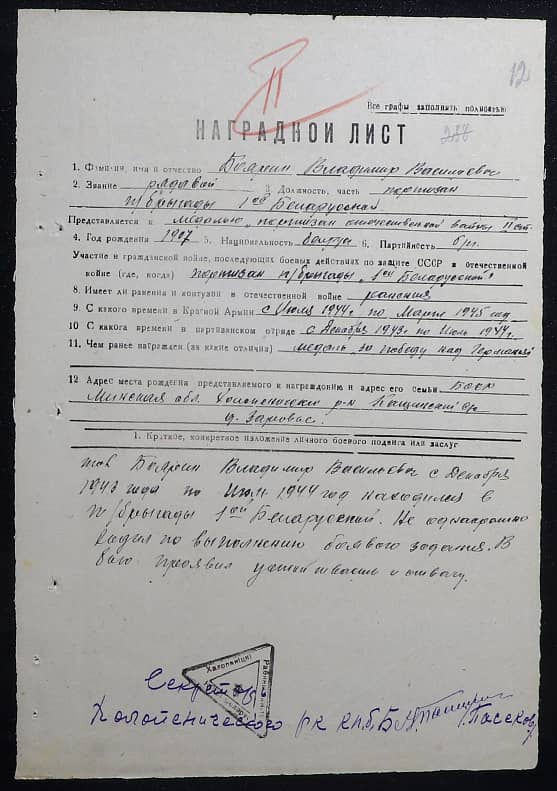 12
Все графы заполнить полностью
НАГРАДНОЙ ЛИСТ
1. Фамилия, имя и отчество Боярин Владимир Васильевич
2. Звание рядовой 3. Должность, часть партизан
п/бригады 1ая Беларуская
Представляется к медалью "партизан отечественной войны II ст.
4. Год рождения 1907 5. Национальность белорус 6. Партийность б/п.
Участие в гражданской войне, последующих боевых действиях по защите СССР и отечественной
войне (где, когда) партизан п/бригады "1ая Беларуская"
8. Имеет ли ранения и контузии в отечественной войне ранения
9. С какого времени в Красной Армии с Июля 1944 г. по Март 1945 год
10 С какого времени в партизанском отряде с Декабря 1943 г. по Июль 1944 г.
11. Чем ранее награжден (за какие отличия) медаль за победу над Германией
12 Адрес места рождения представляемого к награждению и адрес его семьи БССР
Минская обл. Холопенический р-н
1. Краткое, конкретное изложение личного боевого подвига или заслуг
тов Боярин Владимир Васильевич с Декабря
1943 года по Июль 1944 год находился в
п/бригады 1ой Беларуской. Не однократно
ходил по выполнению боявого задания. В
бою проявил и отвагу.
Секретарь
Холопенического рк кп/б/Б